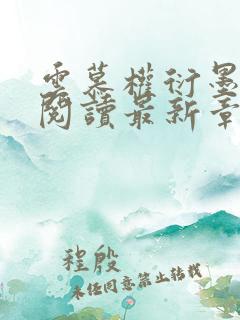 雲慕權衍墨
閱讀最新章
程殷
未任同意禁止转载